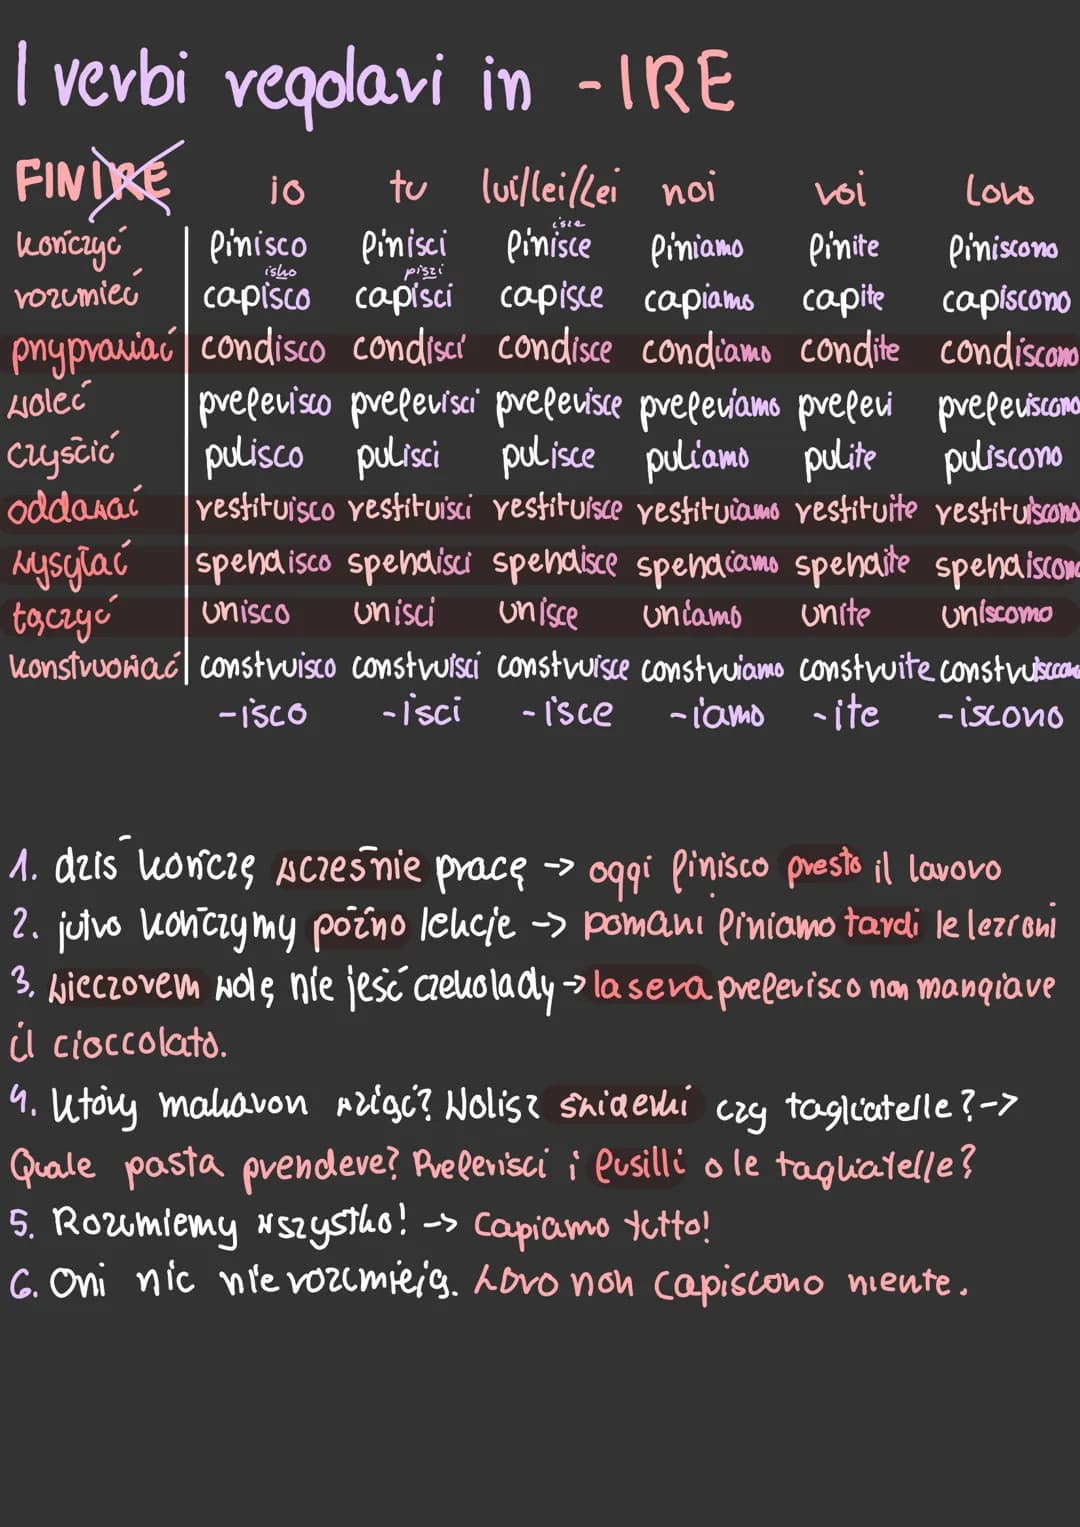 I verbi regolari in -IRE
FINIRE io tu lui/lei/Lei noi voi Loro
isce
kończyć finisco finisci finisce finiamo finite finiscono
isko piszi
rozumieć capisco capisci capisce capiamo capite capiscono
przyprawiać condisco condisci condisce condiamo condite condiscono
woleć preferisco preferisci preferisce preferiamo preferi preferiscono
czyścić pulisco pulisci pulisce puliamo pulite puliscono
oddawać restituisco restituisci restituisce restituiamo restituite restituiscono
wysyłać spendisco spendisci spendisce spendiamo spendite spendiscono
łączyć unisco unisci unisce uniamo unite uniscomo
konstruować construisco construisci construisce construiamo construite construiscono
-isco -isci -isce -iamo -ite -iscono
1. dziś kończę wcześnie pracę -> oggi finisco presto il lavoro
2. jutro kończymy późno lekcje -> Domani finiamo tardi le lezioni
3. wieczorem wolę nie jeść czekolady -> la sera preferisco non mangiare
il cioccolato.
4. Który makaron wziąć? Wolisz świderki czy tagliatelle? ->
Quale pasta prendere? Preferisci i fusilli o le tagliatelle?
5. Rozumiemy wszystko! -> Capiamo tutto!
6. Oni nic nie rozumieją. Loro non capiscono niente.